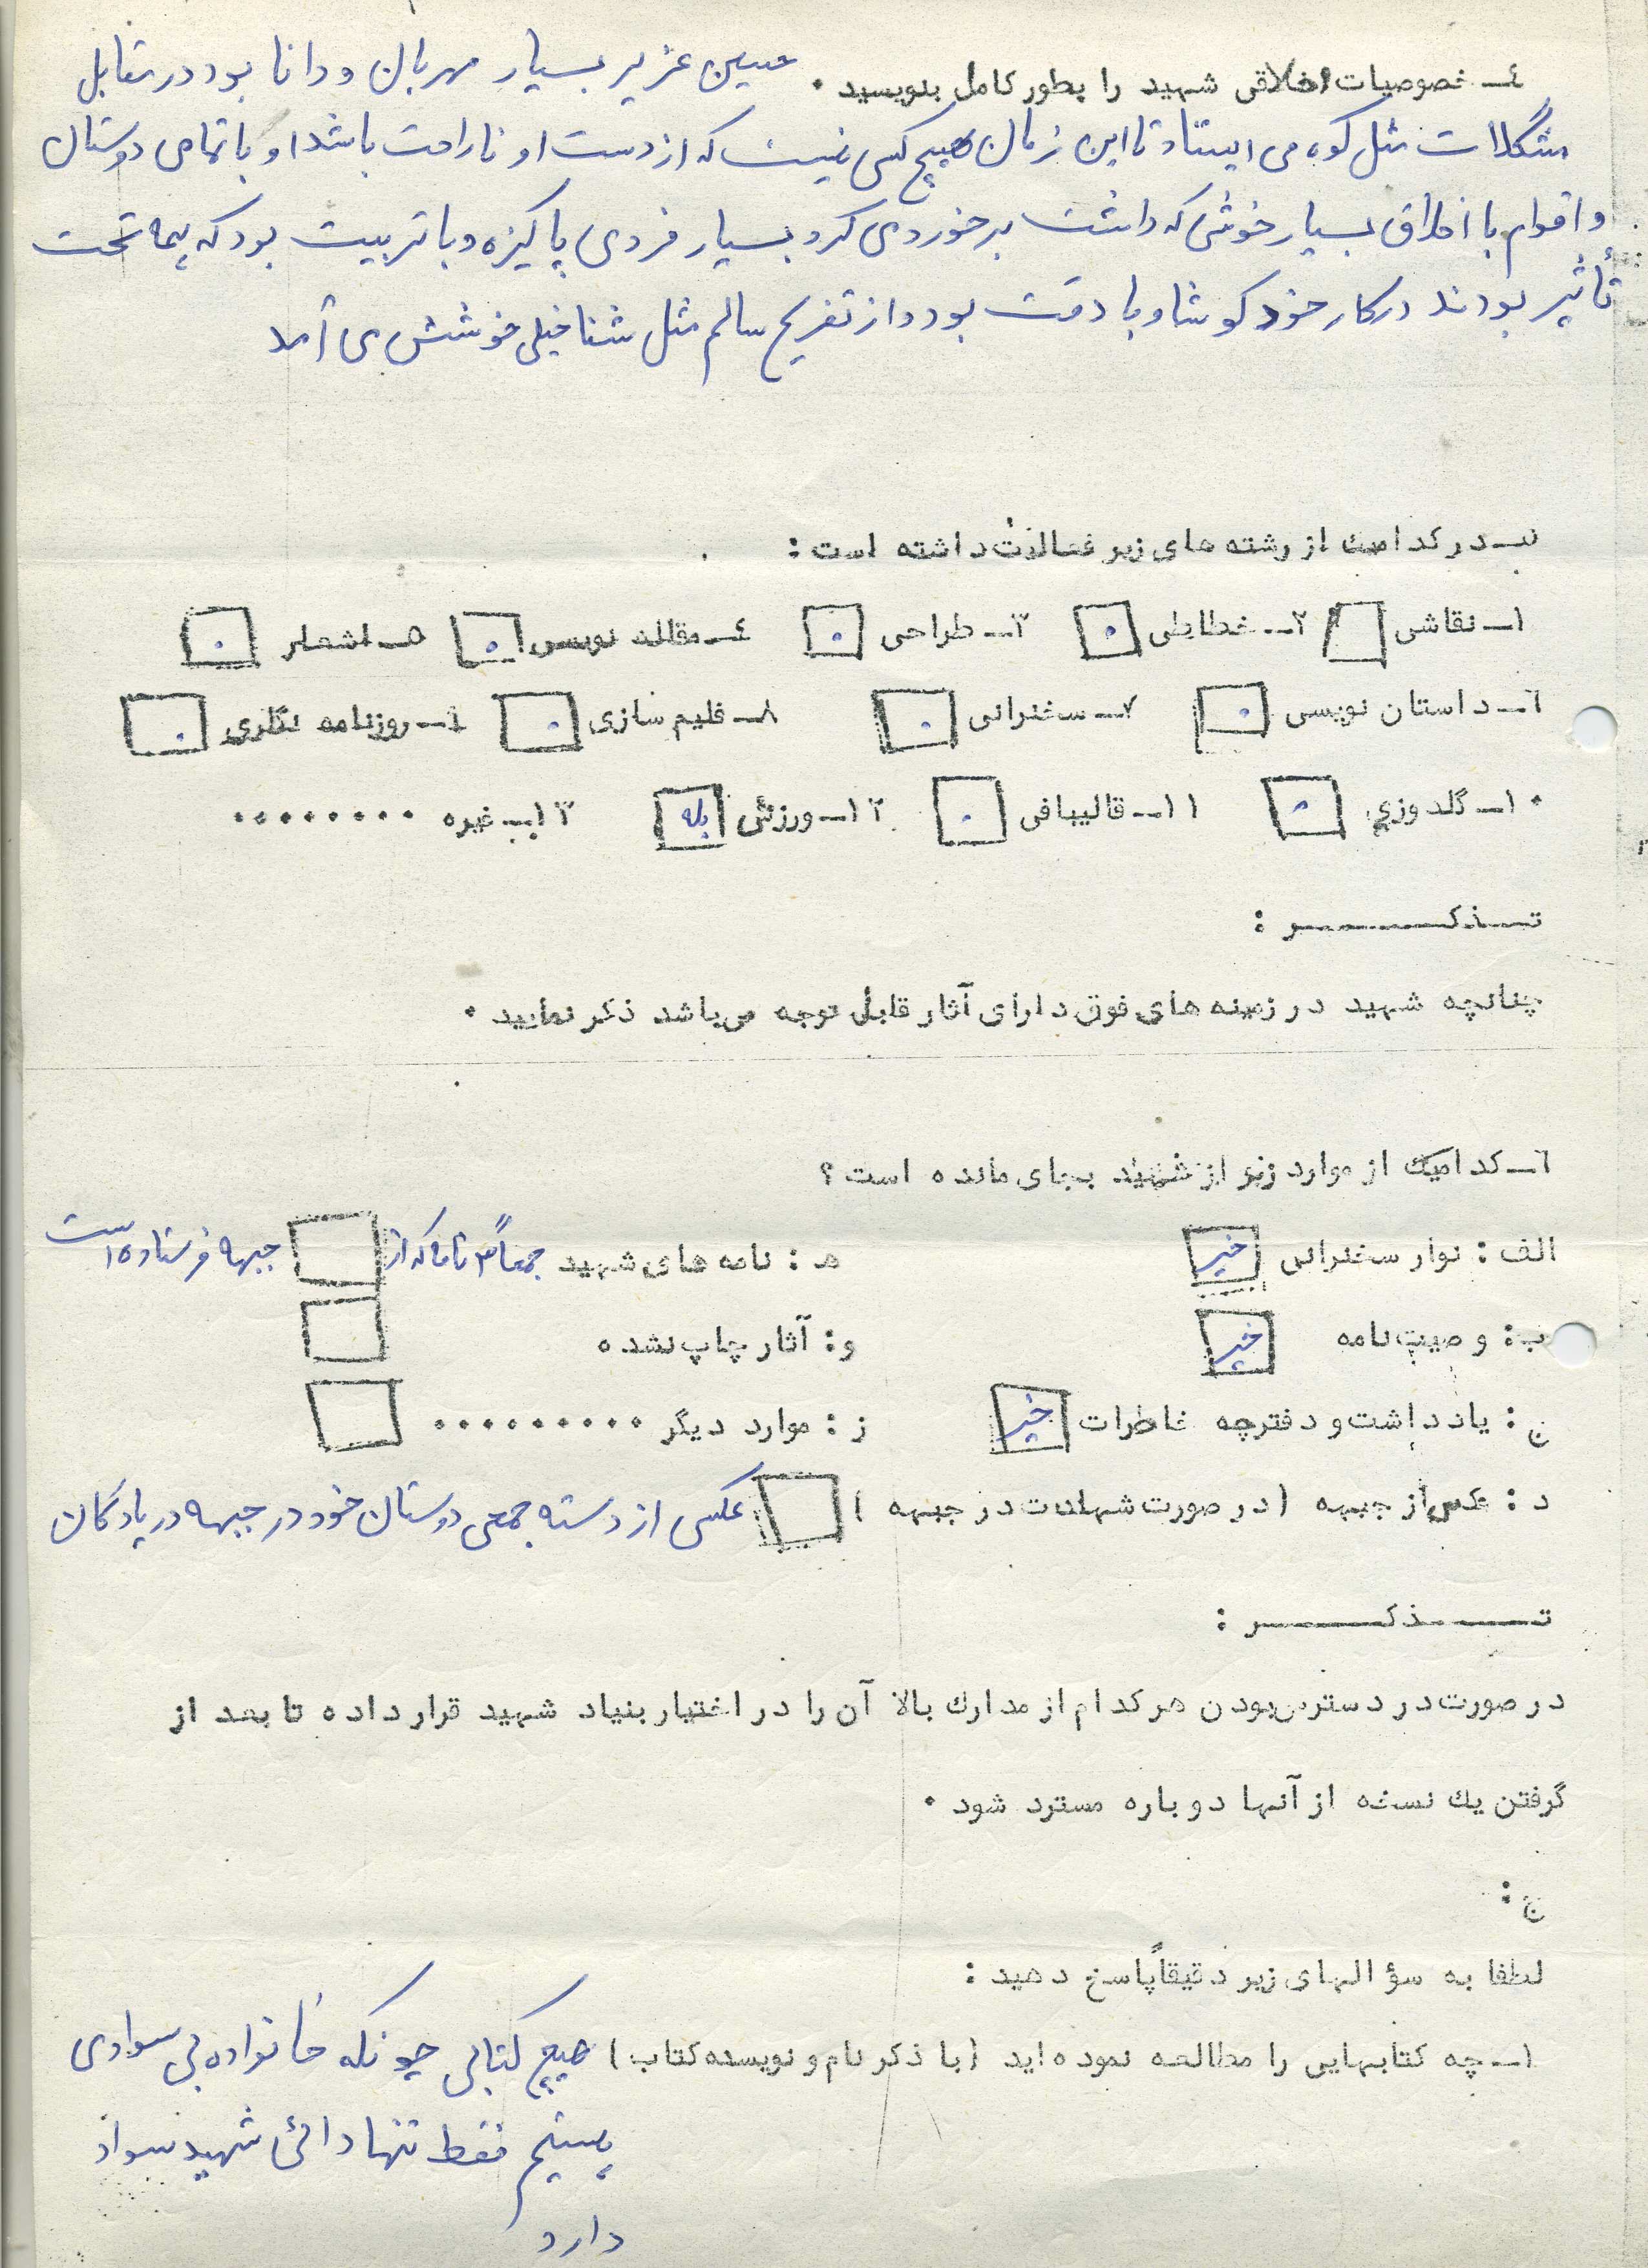 ٤ـ خصوصیات اخلاقی شهید را بطور کامل بنویسید . حسین عزیز بسیار مهربان و دانا بود در مقابل
مشگلات مثل کوه می ایستاد تا این زمان هیچ کس نیست که از دست او ناراحت باشد او با تمامی دوستان
و اقوام با اخلاق بسیار خوشی که داشت برخورد می کرد بسیار فردی پاکیزه و با تربیت بود که همه تحت
تأثیر بودند در کار خود کوشا و با دقت بود و از تفریح سالم مثل شنا خیلی خوشش می آمد
در کدامیك از رشته های زیر فعالیت داشته است :
۱ـ نقاشی ۲ـ خطاطی ۳ـ طراحی ٤ـ مقاله نویسی ۵ـ اشعار
٦ـ داستان نویسی ۷ـ سخنرانی ۸ـ فلیم سازی ۹ـ روزنامه نگاری
۱۰ـ گلدوزی ۱۱ـ قالیبافی ۱۲ـ ورزش بله ۱۳ـ غیره ........
تـذکـــر :
چنانچه شهید در زمینه های فوق دارای آثار قابل توجه می‌باشد ذکر نمایید .
٦ـ کدامیك از موارد زیر از شهید بجای مانده است ؟
الف : نوار سخنرانی خیر ه : نامه های شهید جمعاً ۳ تا نامه که از جبهه فرستاده است
ب : وصیت نامه خیر و : آثار چاپ نشده
ج : یادداشت و دفترچه خاطرات خیر ز : موارد دیگر .........
د : عکس از جبهه (در صورت شهادت در جبهه ) عکسی از دسته جمعی دوستان خود در جبهه در پادگان
تـــذکـــر :
در صورت در دسترس بودن هر کدام از مدارك بالا آن را در اختیار بنیاد شهید قرار داده تا بعد از
گرفتن یك نسخه از آنها دوباره مسترد شود .
ج :
لطفا به سؤالهای زیر دقیقاً پاسخ دهید :
۱ـ چه کتابهایی را مطالعه نموده اید (با ذکر نام و نویسنده کتاب ) هیچ کتابی چونکه خانواده بی سوادی
هستیم فقط تنها دائی شهید سواد
دارد